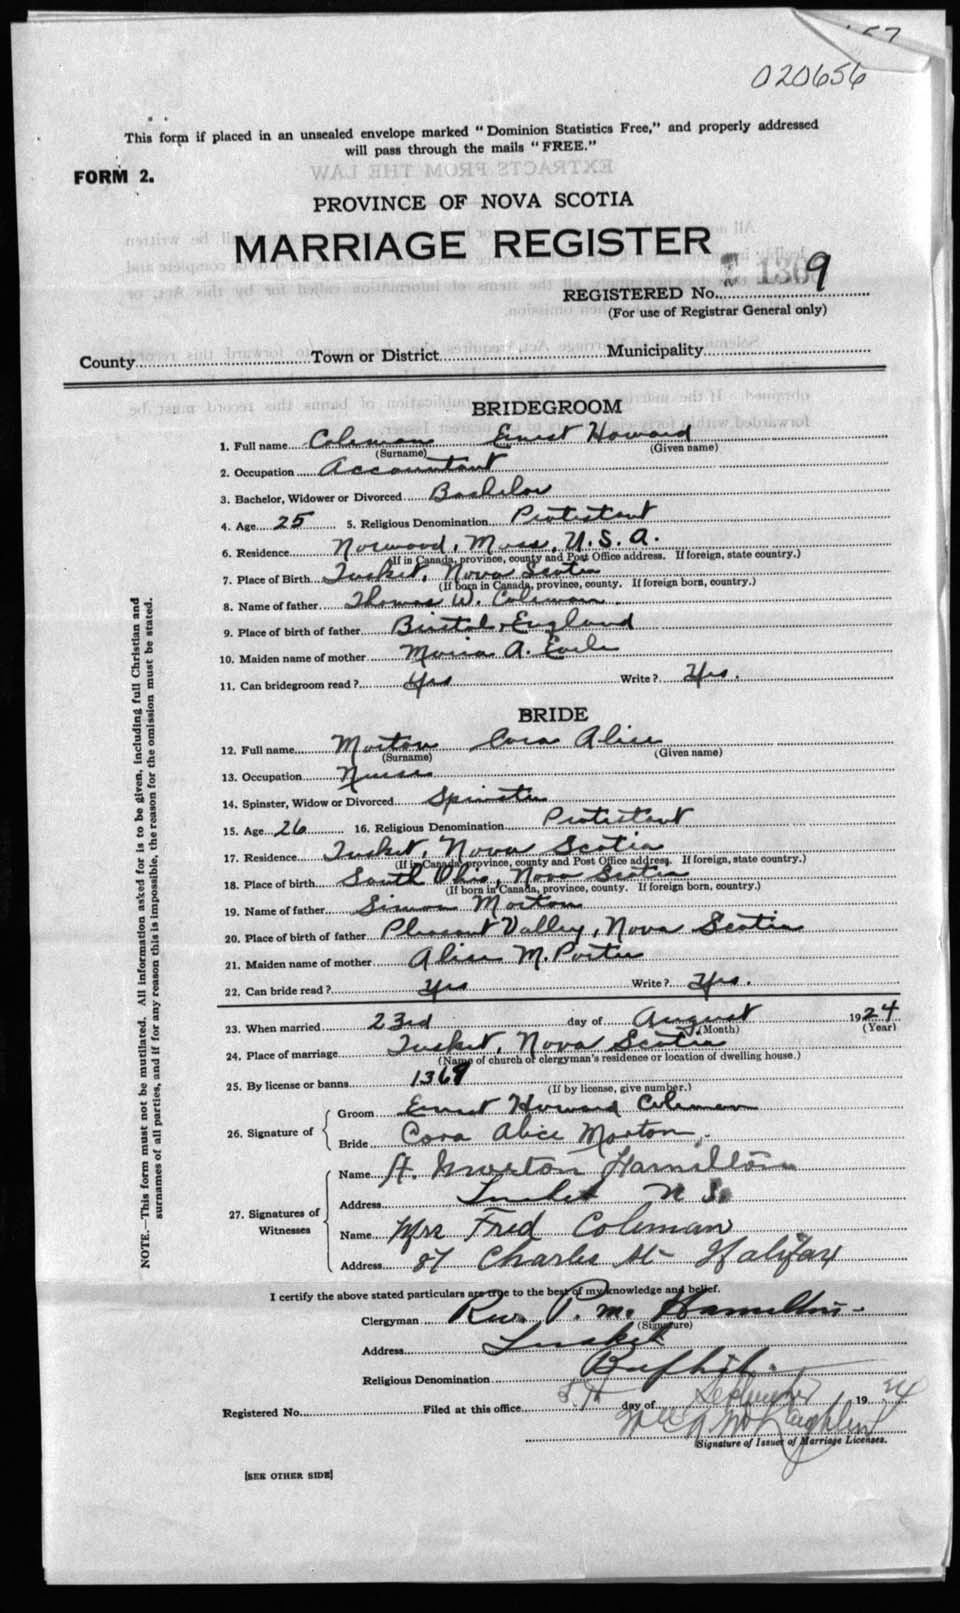 020656
This form if placed in an unsealed envelope marked "Dominion Statistics Free," and properly addressed
will pass through the mails "FREE."
FORM 2.
PROVINCE OF NOVA SCOTIA
MARRIAGE REGISTER
REGISTERED No. 1369
(For use of Registrar General only)
County Town or District Municipality
BRIDEGROOM
1. Full name Coleman Ernest Howard
(Surname) (Given name)
2. Occupation Accountant
3. Bachelor, Widower or Divorced Bachelor
4. Age 25 5. Religious Denomination Protestant
6. Residence Norwood, Mass, U.S.A.
(If in Canada, province, county and Post Office address. If foreign, state country.)
7. Place of Birth Tusket, Nova Scotia
(If born in Canada, province, county. If foreign born, country.)
8. Name of father Thomas W. Coleman
9. Place of birth of father Bristol, England
10. Maiden name of mother Maria A. Earle
11. Can bridegroom read? Yes Write? Yes.
BRIDE
12. Full name Morton Cora Alice
(Surname) (Given name)
13. Occupation Nurse
14. Spinster, Widow or Divorced Spinster
15. Age 26 16. Religious Denomination Protestant
17. Residence Tusket, Nova Scotia
(If in Canada, province, county and Post Office address. If foreign, state country.)
18. Place of birth South Ohio, Nova Scotia
(If born in Canada, province, county. If foreign born, country.)
19. Name of father Simon Morton
20. Place of birth of father Pleasant Valley, Nova Scotia
21. Maiden name of mother Alice M. Porter
22. Can bride read? Yes Write? Yes.
23. When married 23rd day of August 1924
(Month) (Year)
24. Place of marriage Tusket, Nova Scotia
(Name of church or clergyman's residence or location of dwelling house.)
25. By license or banns 1369
(If by license, give number.)
26. Signature of Groom Ernest Howard Coleman
Bride Cora Alice Morton
27. Signatures of Witnesses
Name H. Morton Hamilton
Address Tusket N S.
Name Mrs Fred Coleman
Address 87 Charles St- Halifax
I certify the above stated particulars are true to the best of my knowledge and belief.
Clergyman Rev. P. M. Hamilton
(Signature)
Address Tusket
Religious Denomination Baptist
Registered No. Filed at this office 5th day of September 1924
Signature of Issuer of Marriage Licenses.
[SEE OTHER SIDE]
NOTE.—This form must not be mutilated. All information asked for is to be given, including full Christian and
surnames of all parties, and if for any reason this is impossible, the reason for the omission must be stated.